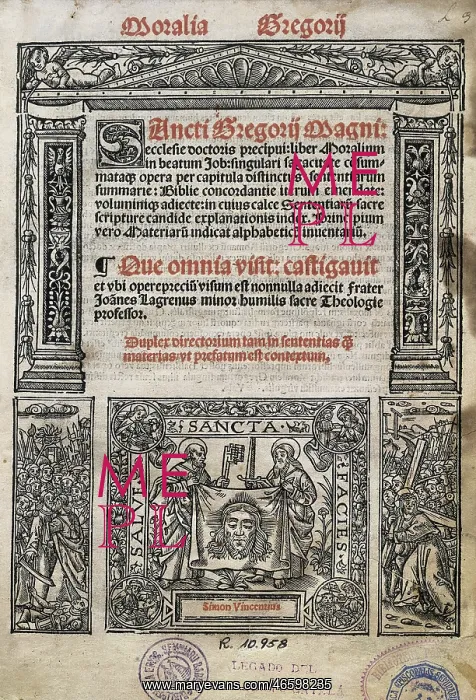 Moralia Gregorij
SAncti Gregorij Magni:
ecclesie doctoris precipui: liber Moralium
in beatum Job: singulari
mataqʒ opera per capitula distinct
summarie: Biblie concordantie
voluminiqʒ adiecte: in cuius calce sacre
scripture candide explanationis
vero Materiarū indicat alphabetic
¶ Que omnia visit: castigauit
et vbi operepreciū visum est nonnulla adiecit frater
Joānes Lagrenus minor humilis sacre Theologie
professor.
Duplex directorium tam in sententias q̄
materias: vt prefatum est contextum.
ME
PL
SANCTA
FACIES
SALVE
ME
PL
Simon Vincentius
R. 10.958
LEGADO DEL
www.maryevans.com/46598235